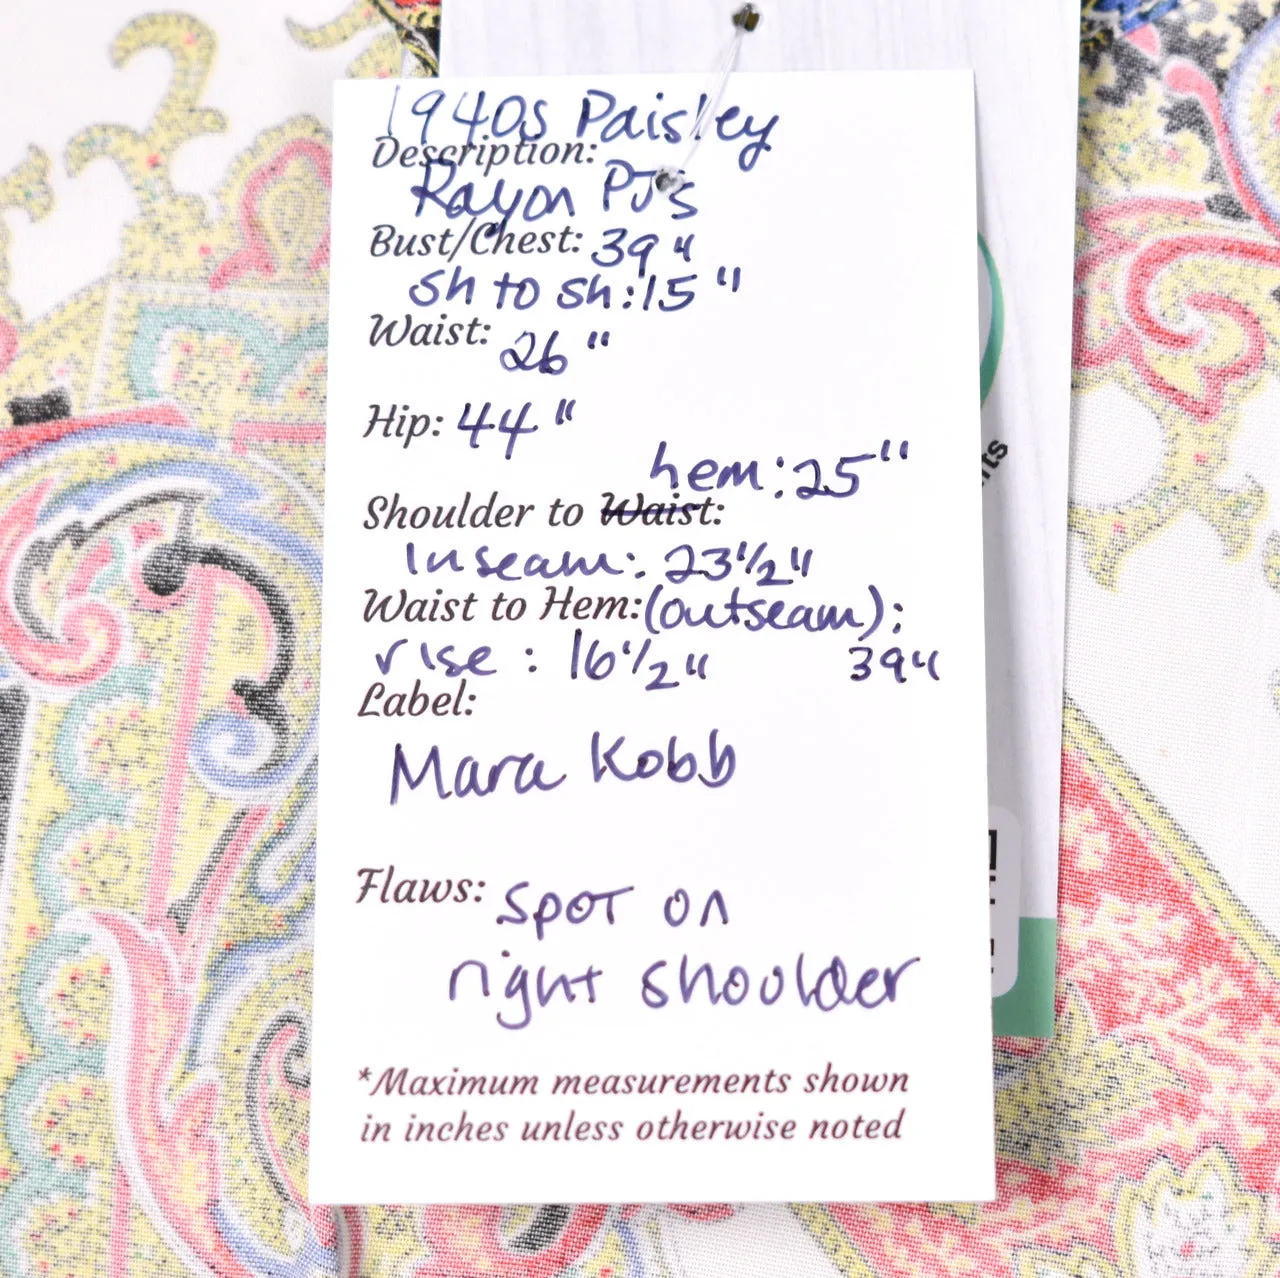 1940s Paisley
Description:
Rayon PJs
Bust/Chest: 39"
sh to sh: 15"
Waist: 26"
Hip: 44"
hem: 25"
Shoulder to Waist:
Inseam: 23 1/2"
Waist to Hem: (outseam):
rise: 16 1/2" 39"
Label:
Mara Kobb
Flaws: Spot on
right shoulder
*Maximum measurements shown
in inches unless otherwise noted